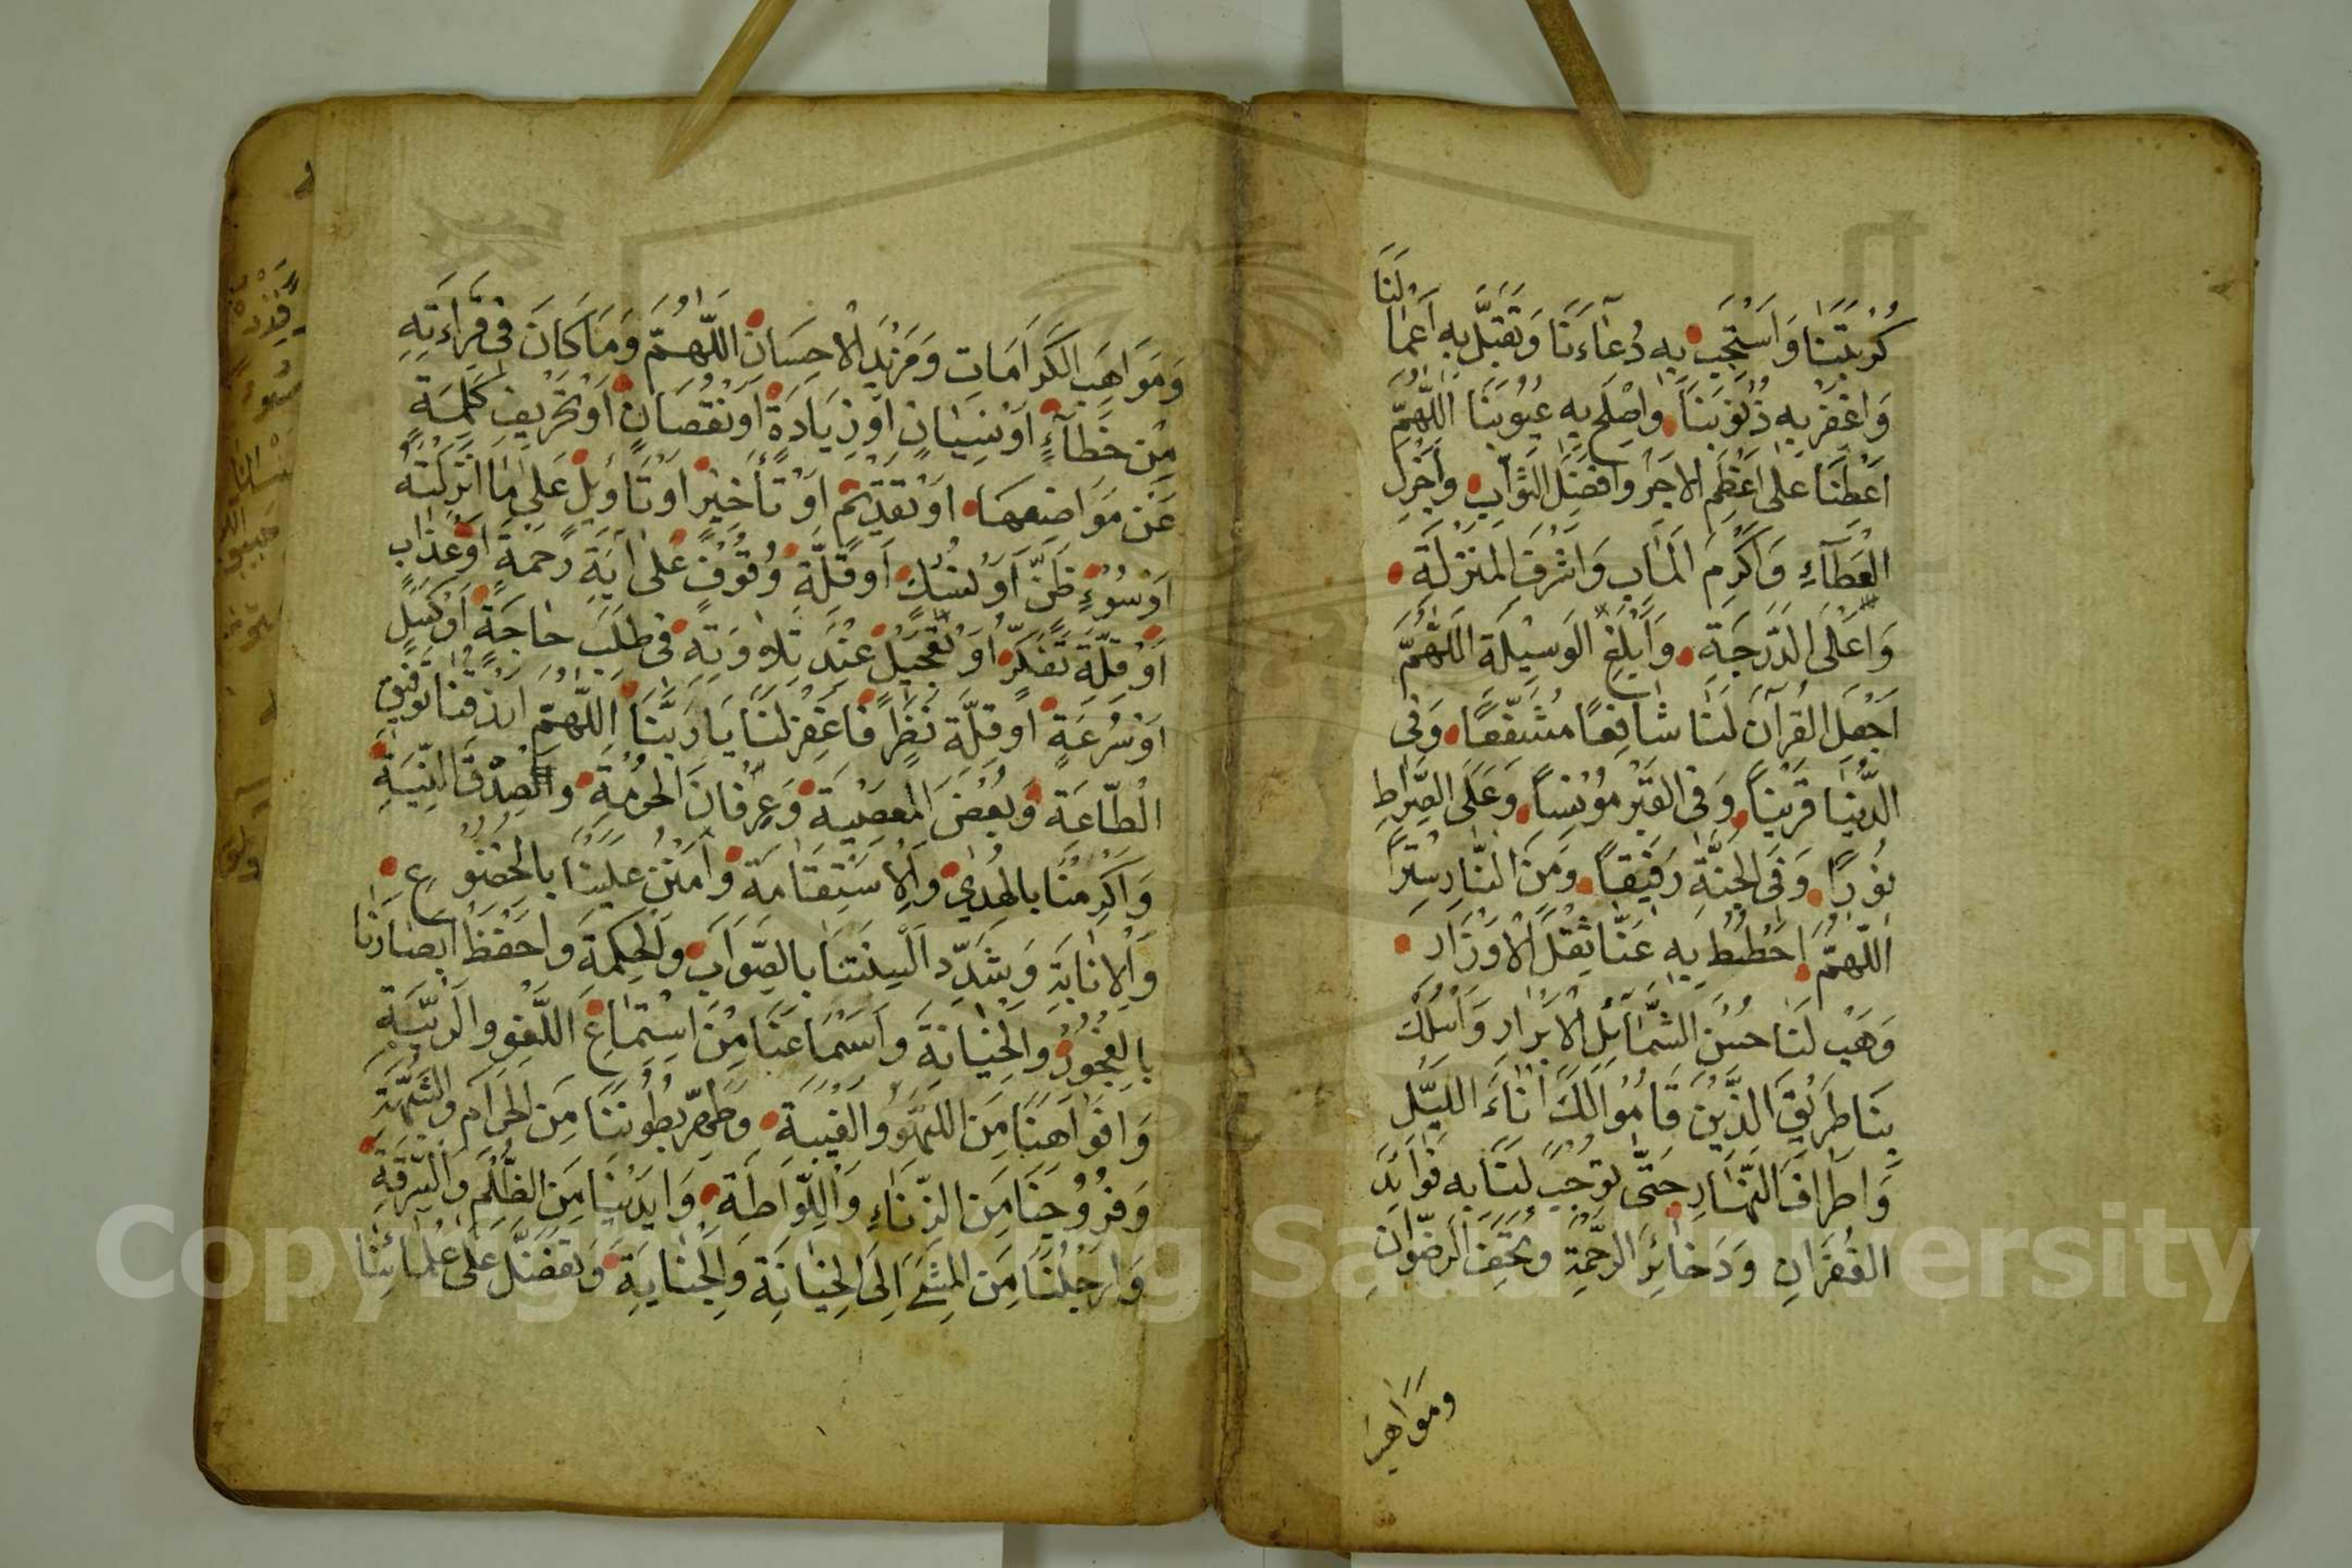 كُرْبَتَنَا وَاسْتَجِبْ بِهِ دُعَاءَنَا وَتَقَبَّلْ بِهِ اَعْمَالَنَا
وَاغْفِرْ بِهِ ذُنُوبَنَا وَاصْلِحْ بِهِ عُيُوبَنَا اَللّٰهُمَّ
اَعْطِنَا عَلٰى اَعْظَمِ الْاَجْرِ وَاَفْضَلِ الثَّوَابِ وَاَجْزَلِ
الْعَطَآءِ وَاَكْرَمِ الْمَاٰبِ وَاَشْرَفِ الْمَنْزِلَةِ
وَاَعْلَى الدَّرَجَةِ وَاَبْلَغِ الْوَسِيلَةِ اَللّٰهُمَّ
اجْعَلِ الْقُرْآنَ لَنَا شَافِعًا مُشَفَّعًا وَفِى
الدُّنْيَا قَرِينًا وَفِى الْقَبْرِ مُونِسًا وَعَلَى الصِّرَاطِ
نُورًا وَفِى الْجَنَّةِ رَفِيقًا وَمِنَ النَّارِ سِتْرًا
اَللّٰهُمَّ احْطُطْ بِهِ عَنَّا ثِقْلَ الْاَوْزَارِ
وَهَبْ لَنَا حُسْنَ الشَّمَآئِلِ الْاَبْرَارِ وَاسْلُكْ
بِنَا طَرِيقَ الَّذِينَ قَامُوا لَكَ اٰنَاءَ اللَّيْلِ
وَاَطْرَافَ النَّهَارِ حَتّٰى تُوجِبَ لَنَا بِهِ فَوَايِدَ
الْغُفْرَانِ وَدَخَائِرَ الرَّحْمَةِ وَتُحَفَ الرِّضْوَانِ
وَمَوَاهِبَ
وَمَوَاهِبَ الْكَرَامَاتِ وَمَزِيدَ الْاِحْسَانِ اللّٰهُمَّ وَمَا كَانَ فِى قِرَاءَتِهِ
مِنْ خَطَآءٍ اَوْ نِسْيَانٍ اَوْ زِيَادَةٍ اَوْ نُقْصَانٍ اَوْ تَحْرِيفِ كَلِمَةٍ
عَنْ مَوَاضِعِهَا اَوْ تَقْدِيمٍ اَوْ تَأْخِيرٍ اَوْ تَاْوِيلٍ عَلٰى مَا اَنْزَلْتَهُ
اَوْ سُوءِ ظَنٍّ اَوْ شَكٍّ اَوْ قِلَّةِ وُقُوفٍ عَلٰى اٰيَةِ رَحْمَةٍ اَوْ عَذَابٍ
اَوْ قِلَّةِ تَفَكُّرٍ اَوْ تَعْجِيلٍ عِنْدَ تِلَاوَتِهِ فِى طَلَبِ حَاجَةٍ اَوْ كَسَلٍ
اَوْ سُرْعَةٍ اَوْ قِلَّةِ نَظَرٍ فَاغْفِرْ لَنَا يَا رَبَّنَا اَللّٰهُمَّ ارْزُقْنَا تَوْفِيقَ
الطَّاعَةِ وَبُغْضَ الْمَعْصِيَةِ وَعِرْفَانَ الْحُرْمَةِ وَالصِّدْقَ النِّيَّةِ
وَاَكْرِمْنَا بِالْهُدٰى وَالْاِسْتِقَامَةِ وَامْنُنْ عَلَيْنَا بِالْخُضُوعِ
وَالْاِنَابَةِ وَشَدِّدْ اَلْسِنَتَنَا بِالصَّوَابِ وَالْحِكْمَةِ وَاحْفَظْ اَبْصَارَنَا
بِالْفُجُورِ وَالْخِيَانَةِ وَاَسْمَاعَنَا مِنْ اسْتِمَاعِ اللَّغْوِ وَالرِّيبَةِ
وَاَفْوَاهَنَا مِنَ اللَّهْوِ وَالْغِيبَةِ وَطَهِّرْ بُطُونَنَا مِنَ الْحَرَامِ وَالشُّهْبَةِ
وَفُرُوجَنَا مِنَ الزِّنَاءِ وَاللِّوَاطَةِ وَاَيْدِيَنَا مِنَ الظُّلْمِ وَالسَّرِقَةِ
وَاَرْجُلَنَا مِنَ الْمَشْىِ اِلَى الْخِيَانَةِ وَالْجِنَايَةِ وَتَفَضَّلْ عَلٰى عُلَمَائِنَا
Copyright © King Saud University